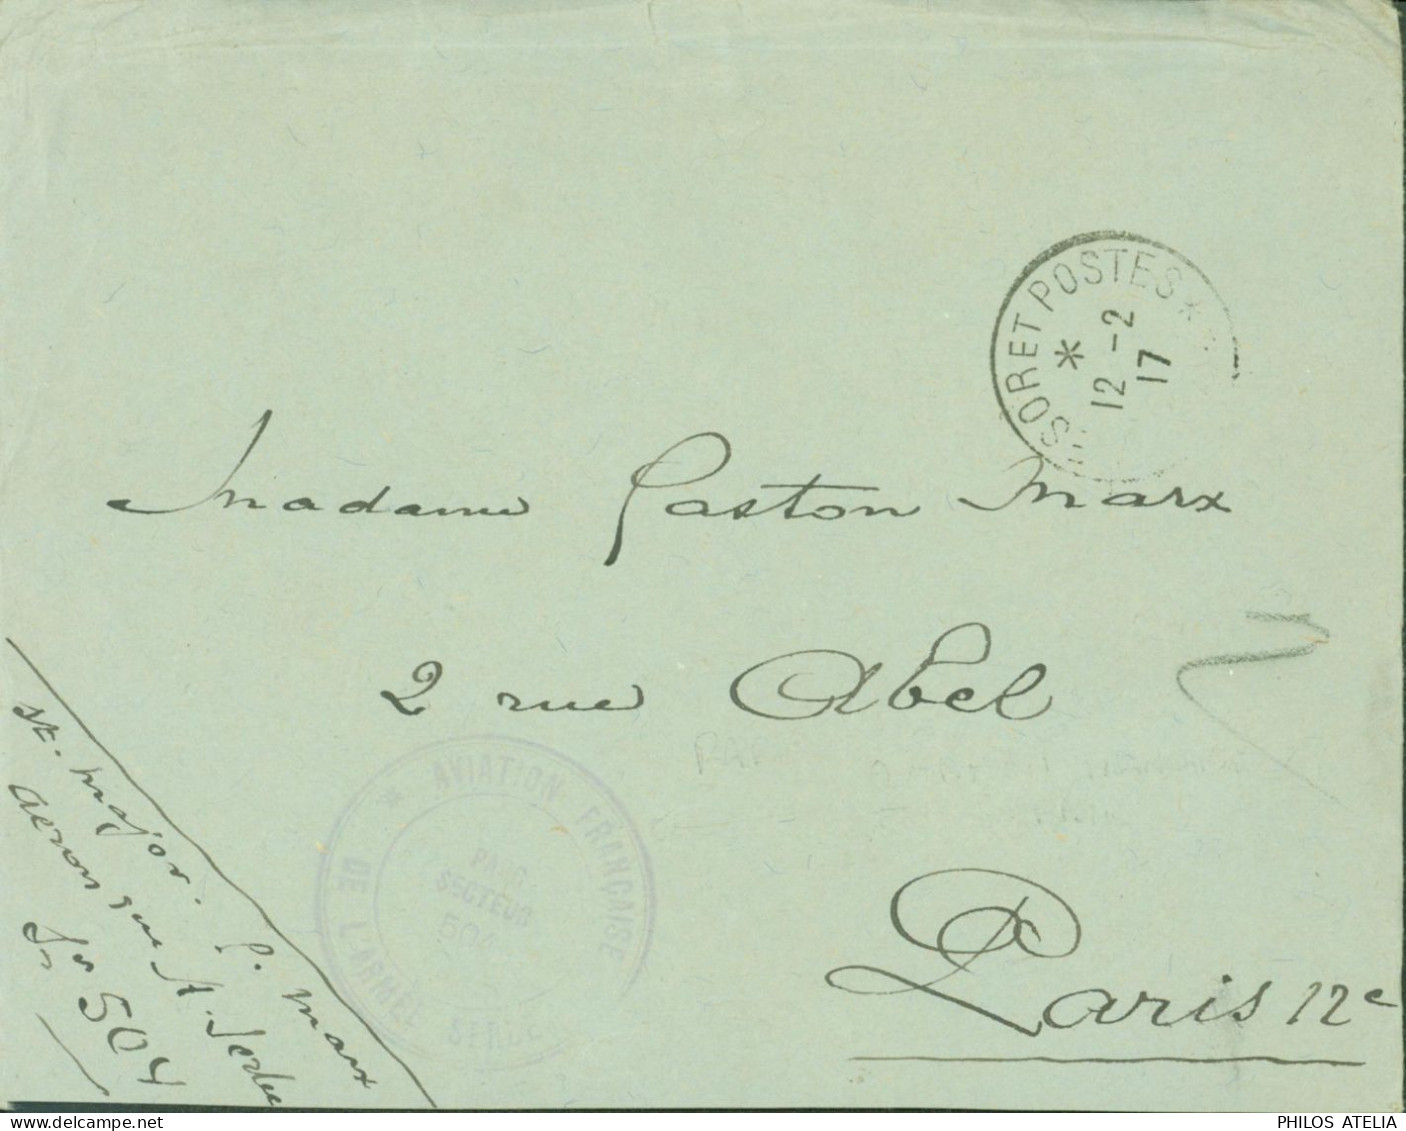 SOR ET POSTES *
*
12 - 2
17
Madame Gaston Marx
2 rue Abel
Paris 12e
* AVIATION FRANÇAISE
DE L'ARMEE
PARC
SECTEUR
504
St. Major.
G. Marx
504
PHILOS ATELIA